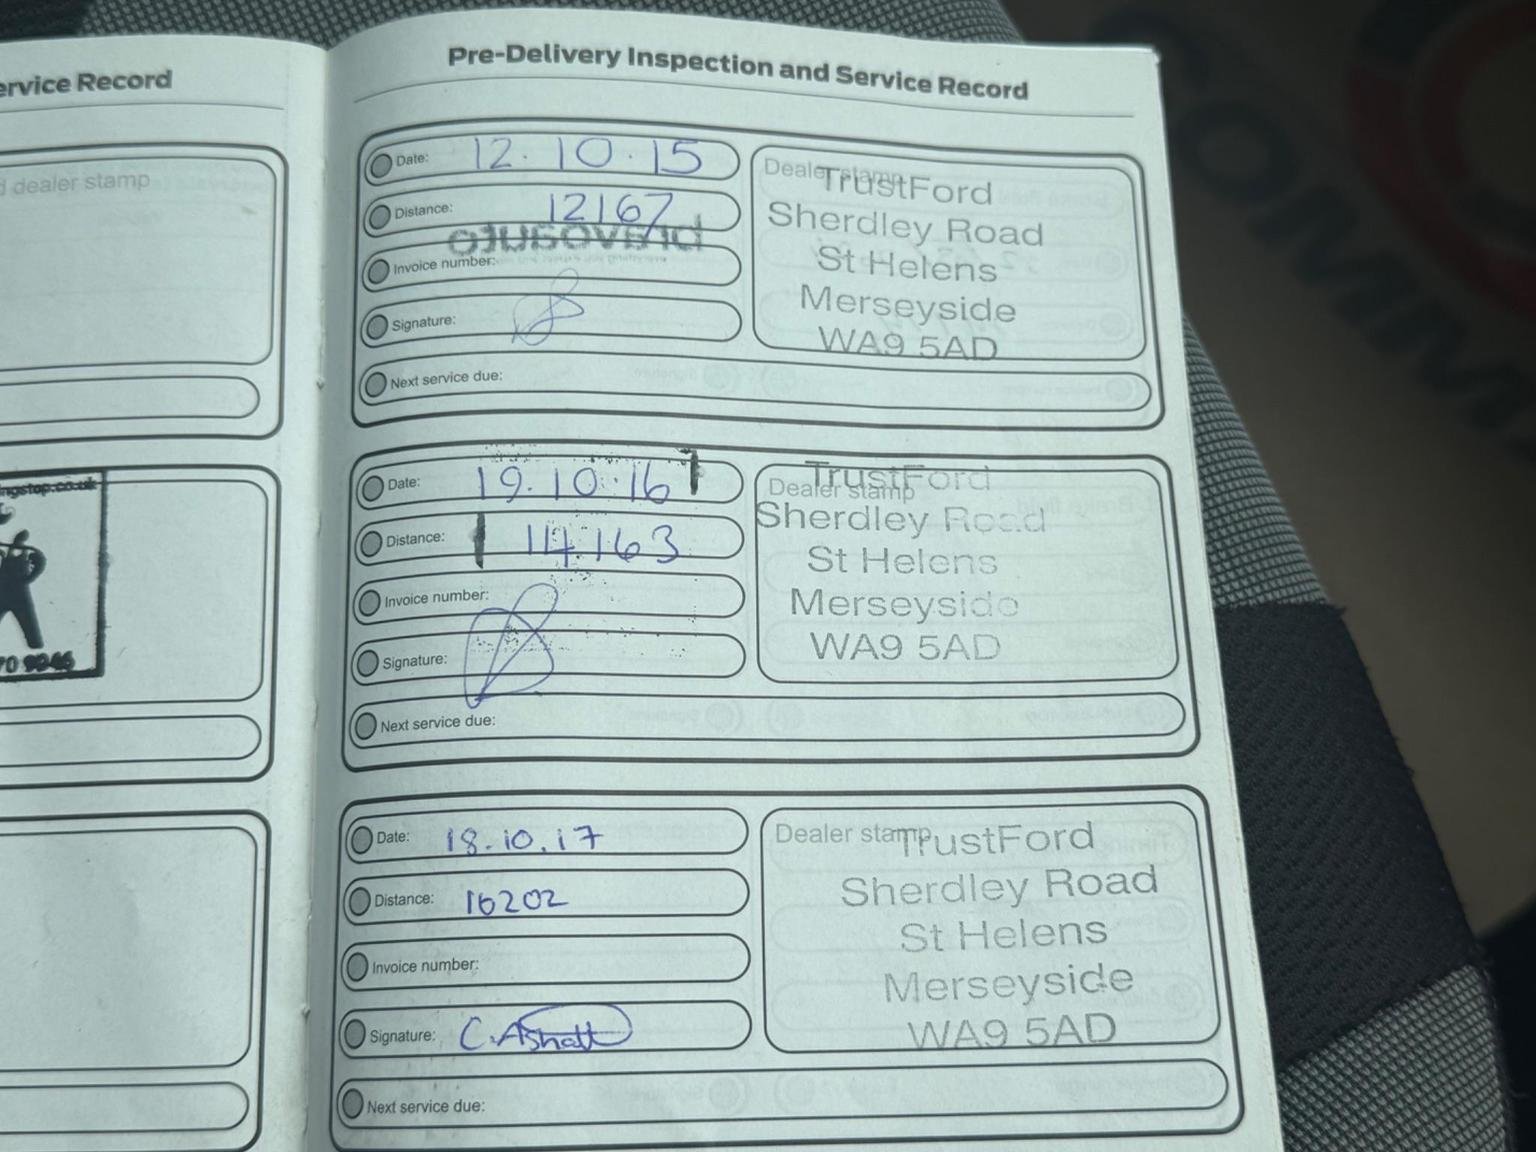 ervice Record
d dealer stamp
ngstop.co.uk
70 9046
Pre-Delivery Inspection and Service Record
Date: 12.10.15
Distance: 12167
Invoice number:
Signature:
Next service due:
Dealer stamp
TrustFord
Sherdley Road
St Helens
Merseyside
WA9 5AD
Date: 19.10.16
Distance: 14163
Invoice number:
Signature:
Next service due:
Dealer stamp
TrustFord
Sherdley Road
St Helens
Merseyside
WA9 5AD
Date: 18.10.17
Distance: 16202
Invoice number:
Signature: C. Ashall
Next service due:
Dealer stamp
TrustFord
Sherdley Road
St Helens
Merseyside
WA9 5AD